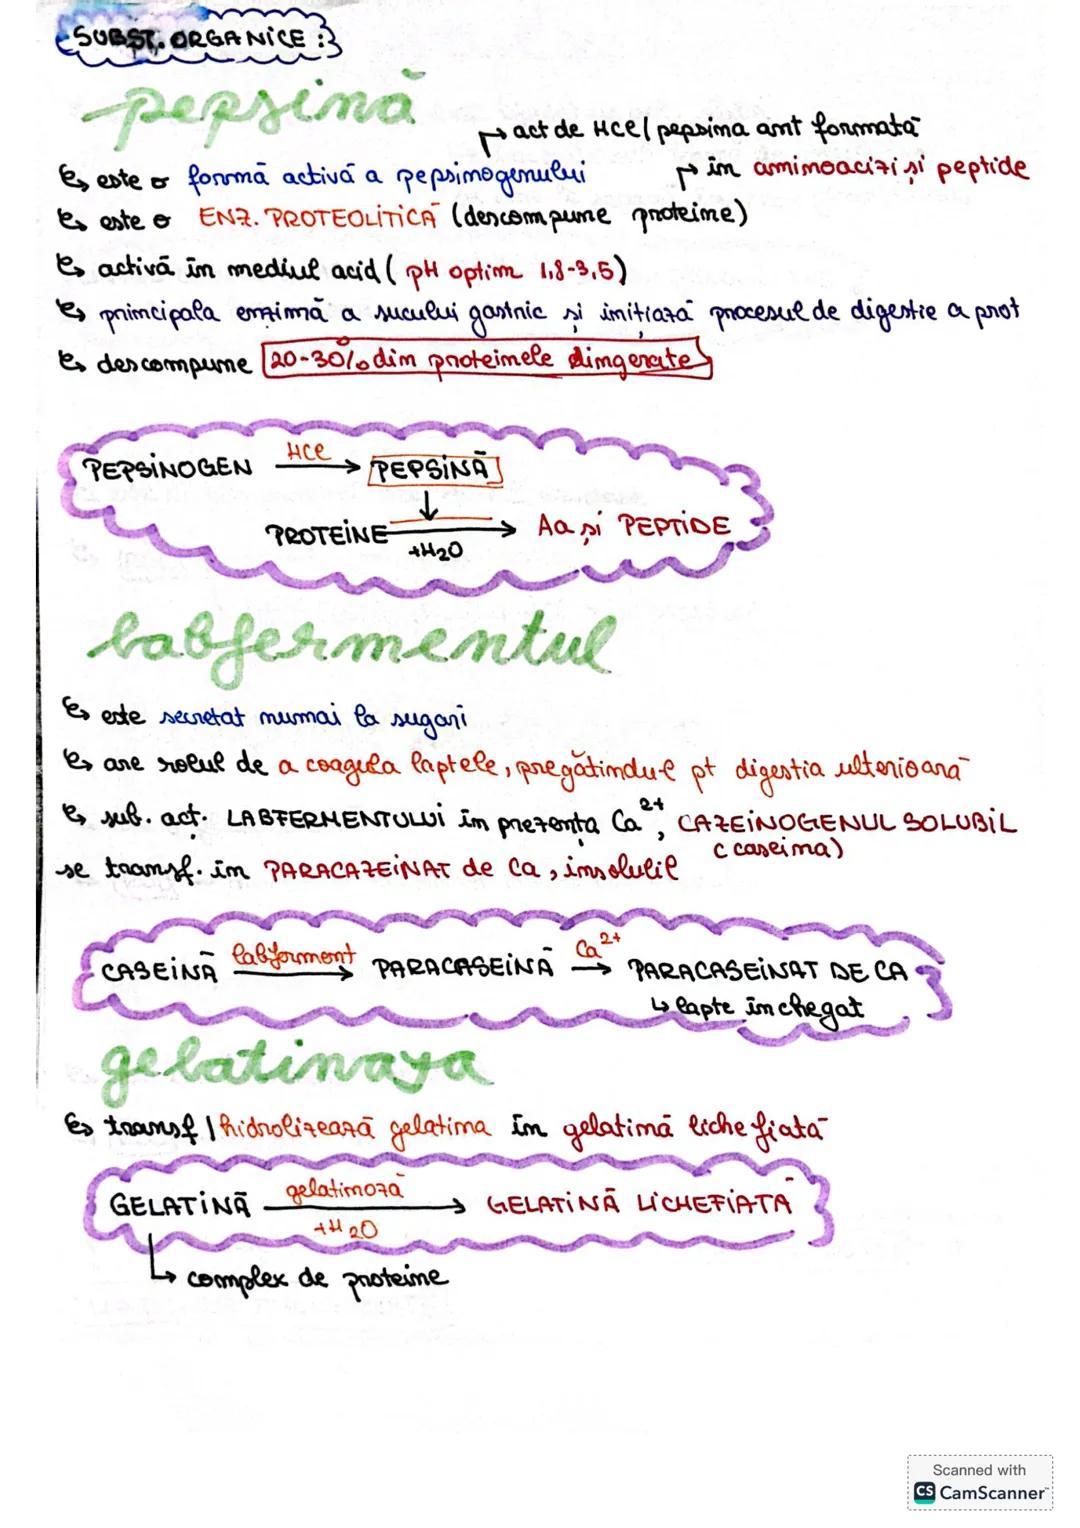 SUBST. ORGANICE:
pepsină
↱ act de HCl / pepsina ant formată
este o formă activă a pepsinogenului
↱ în aminoacizi și peptide
este o ENZ. PROTEOLITICĂ (descompune proteine)
activă în mediul acid ( pH optim 1,8-3,5)
principala enzimă a sucului gastric și inițiază procesul de digestie a prot
descompune 20-30% din proteinele dingerate
PEPSINOGEN HCl → PEPSINĂ
↓
PROTEINE → Aa și PEPTIDE
+H2O
labfermentul
este secretat numai la sugari
are rolul de a coagula laptele, pregătindu-l pt digestia ulterioară
sub. acț. LABFERMENTULUI în prezența Ca2+, CAZEINOGENUL SOLUBIL
(caseina)
se transf. în PARACAZEINAT de Ca, insolubil
CASEINĂ labferment → PARACASEINĂ Ca2+ → PARACASEINAT DE CA
↳ lapte închegat
gelatinaza
transf / hidrolizează gelatina în gelatină lichefiată
GELATINĂ gelatinoză → GELATINĂ LICHEFIATĂ
+H2O
↳ complex de proteine
Scanned with
CS CamScanner